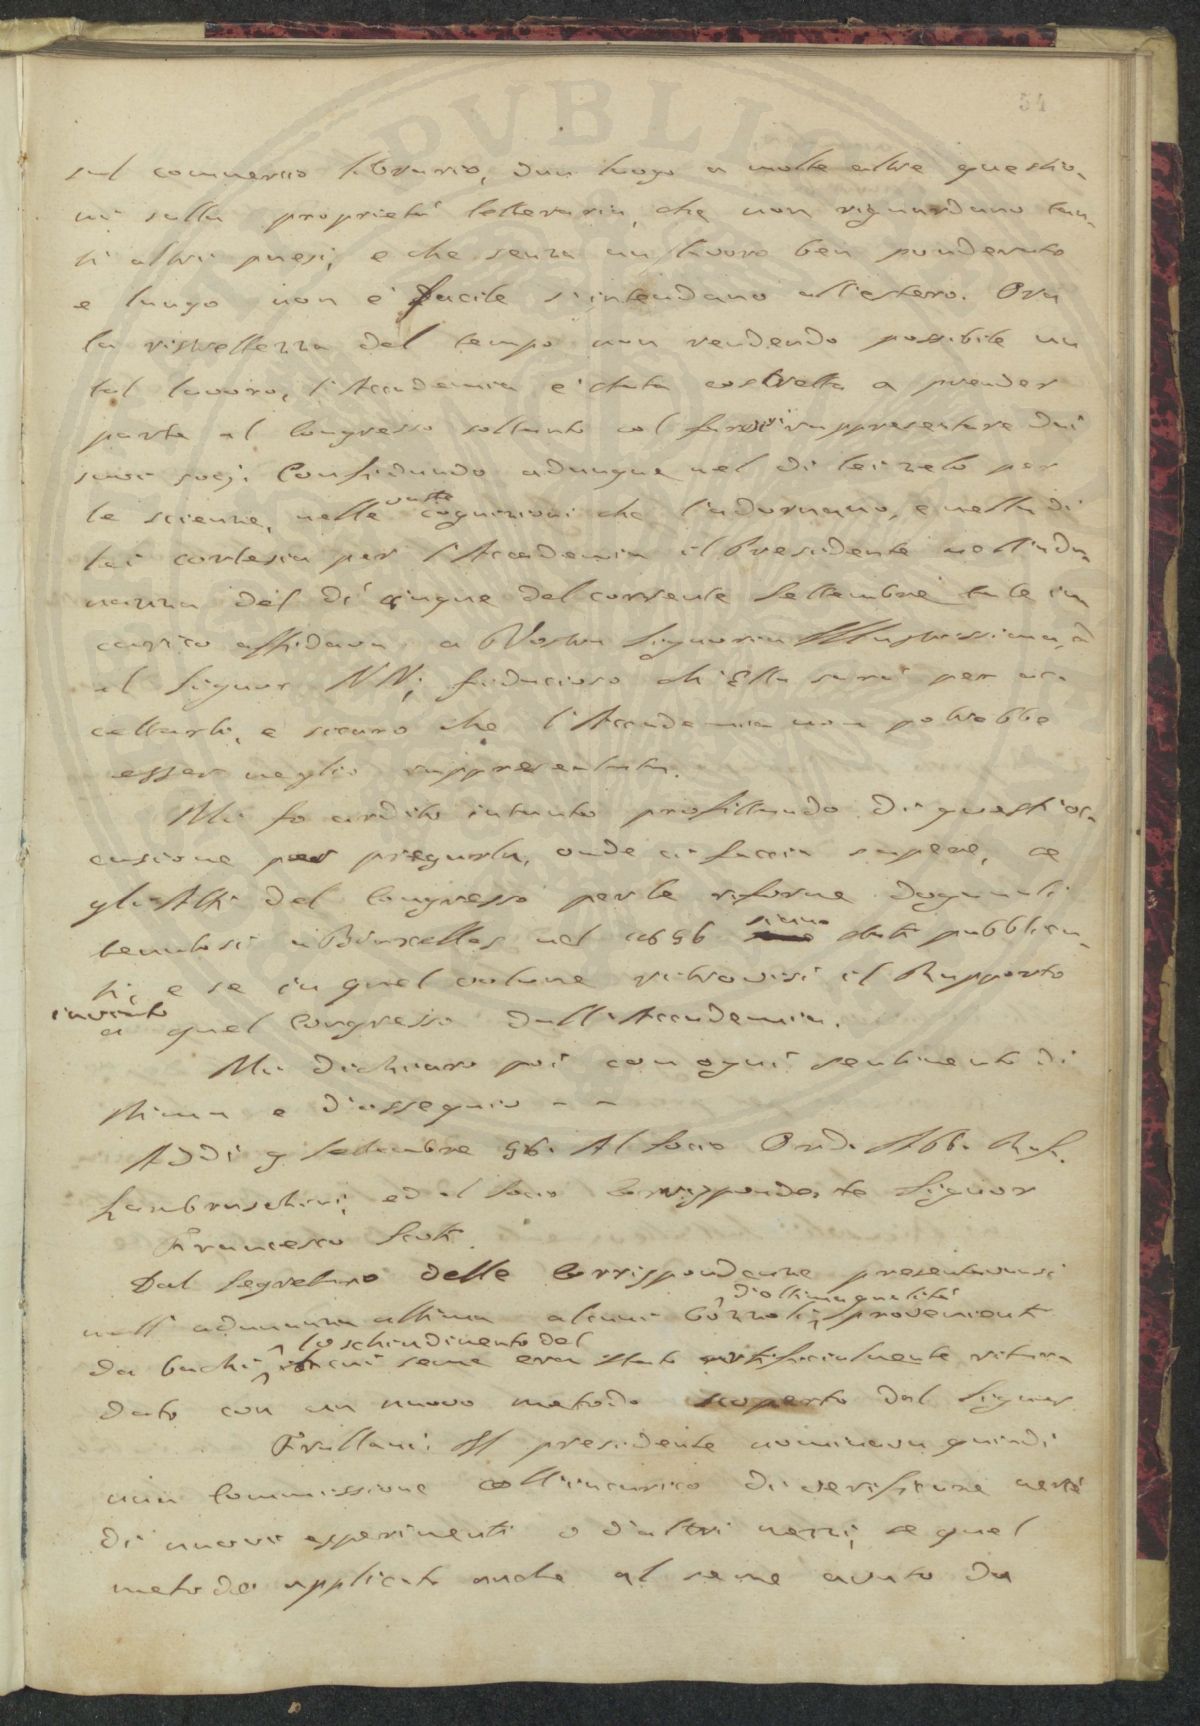 54
sul commercio librario, dan luogo a molte altre questio-
ni sulla proprietà letteraria, che non riguardano tan-
ti altri paesi, e che senza un lavoro ben ponderato
e lungo non è facile s'intendano all'estero. Ora
la ristrettezza del tempo non rendendo possibile un
tal lavoro, l'Accademia è stata costretta a prender
parte al Congresso soltanto col farvisi rappresentare dai
suoi socj. Confidando adunque nel di lei zelo per
le scienze, nelle vaste cognizioni che l'adornano, e nella di
lei cortesia per l'Accademia il Presidente nell'adu-
nanza del dì cinque del corrente Settembre tale in
carico affidava a Vostra Signoria Illustrissima, e
al Signor NN; fiducioso ch'Ella sarà per ac-
cettarlo, e sicuro che l'Accademia non potrebbe
esser meglio rappresentata.
Mi fo ardito intanto profittando di quest'oc-
casione per pregarla, onde ci faccia sapere, se
gli Atti del Congresso per le riforme doganali
tenutosi a Bruxelles nel 1856 sieno stati pubblica-
ti, e se in quel volume ritrovisi il Rapporto
inviato
a quel Congresso dall'Accademia.
Mi dichiaro poi con ogni sentimento di
stima e d'ossequio - -
Addì 9 Settembre 58. Al Socio Ord. Abb. Raf.
Lambruschini, ed al Socio Corrispondente Signor
Francesco Scoti
Dal Segretario delle Corrispondenze presentavansi
d'ottima qualità
nell'adunanza ultima alcuni bozzoli, provenienti
lo schiudimento del
da bachi, cui seme era stato artificialmente ritar-
dato con un nuovo metodo scoperto dal Signor
Frullani. Il presidente nominava quindi
una Commissione coll'incarico di verificare mercè
di nuovi esperimenti o d'altri mezzi, se quel
metodo applicato anche al seme avuto da